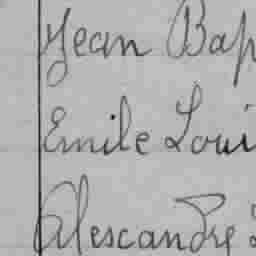 Jean Bap
Emile Loui
Alescandre